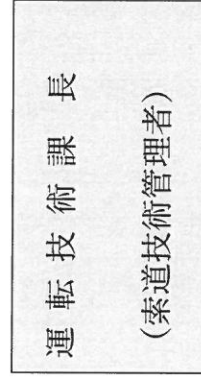 運転技術課長
(索道技術管理者)